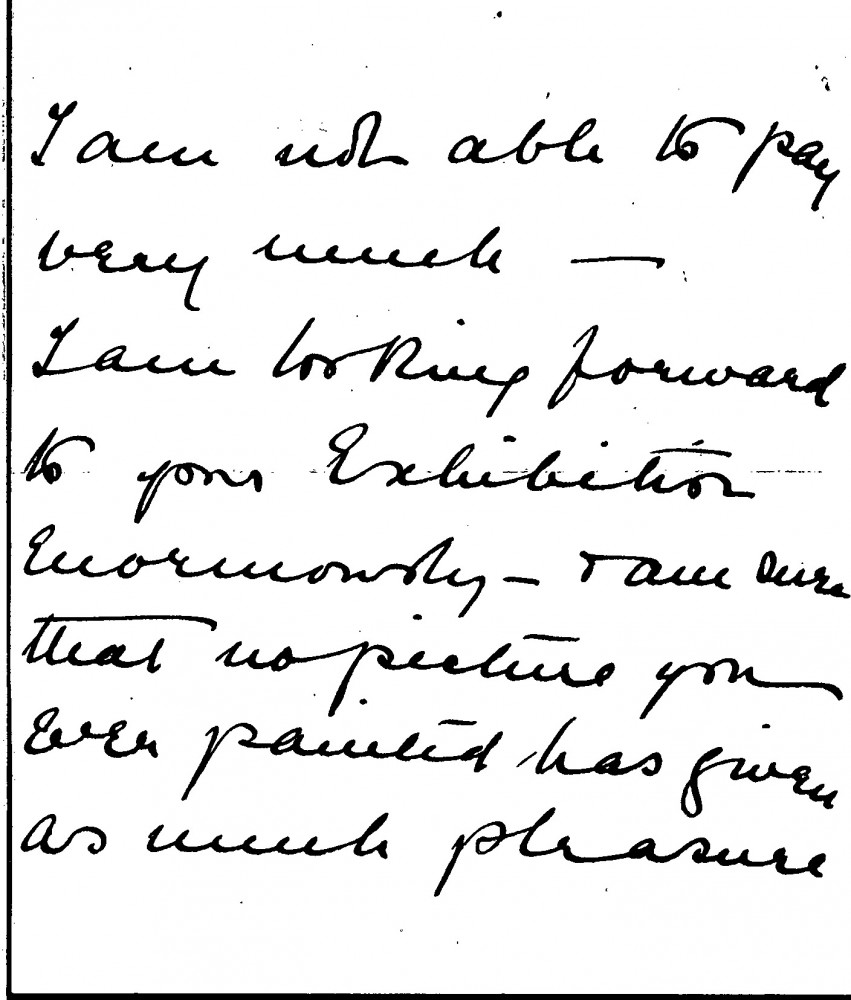 I am not able to pay
very much —
I am looking forward
to your Exhibition
Enormously — & am sure
that no picture you
Ever painted has given
as much pleasure